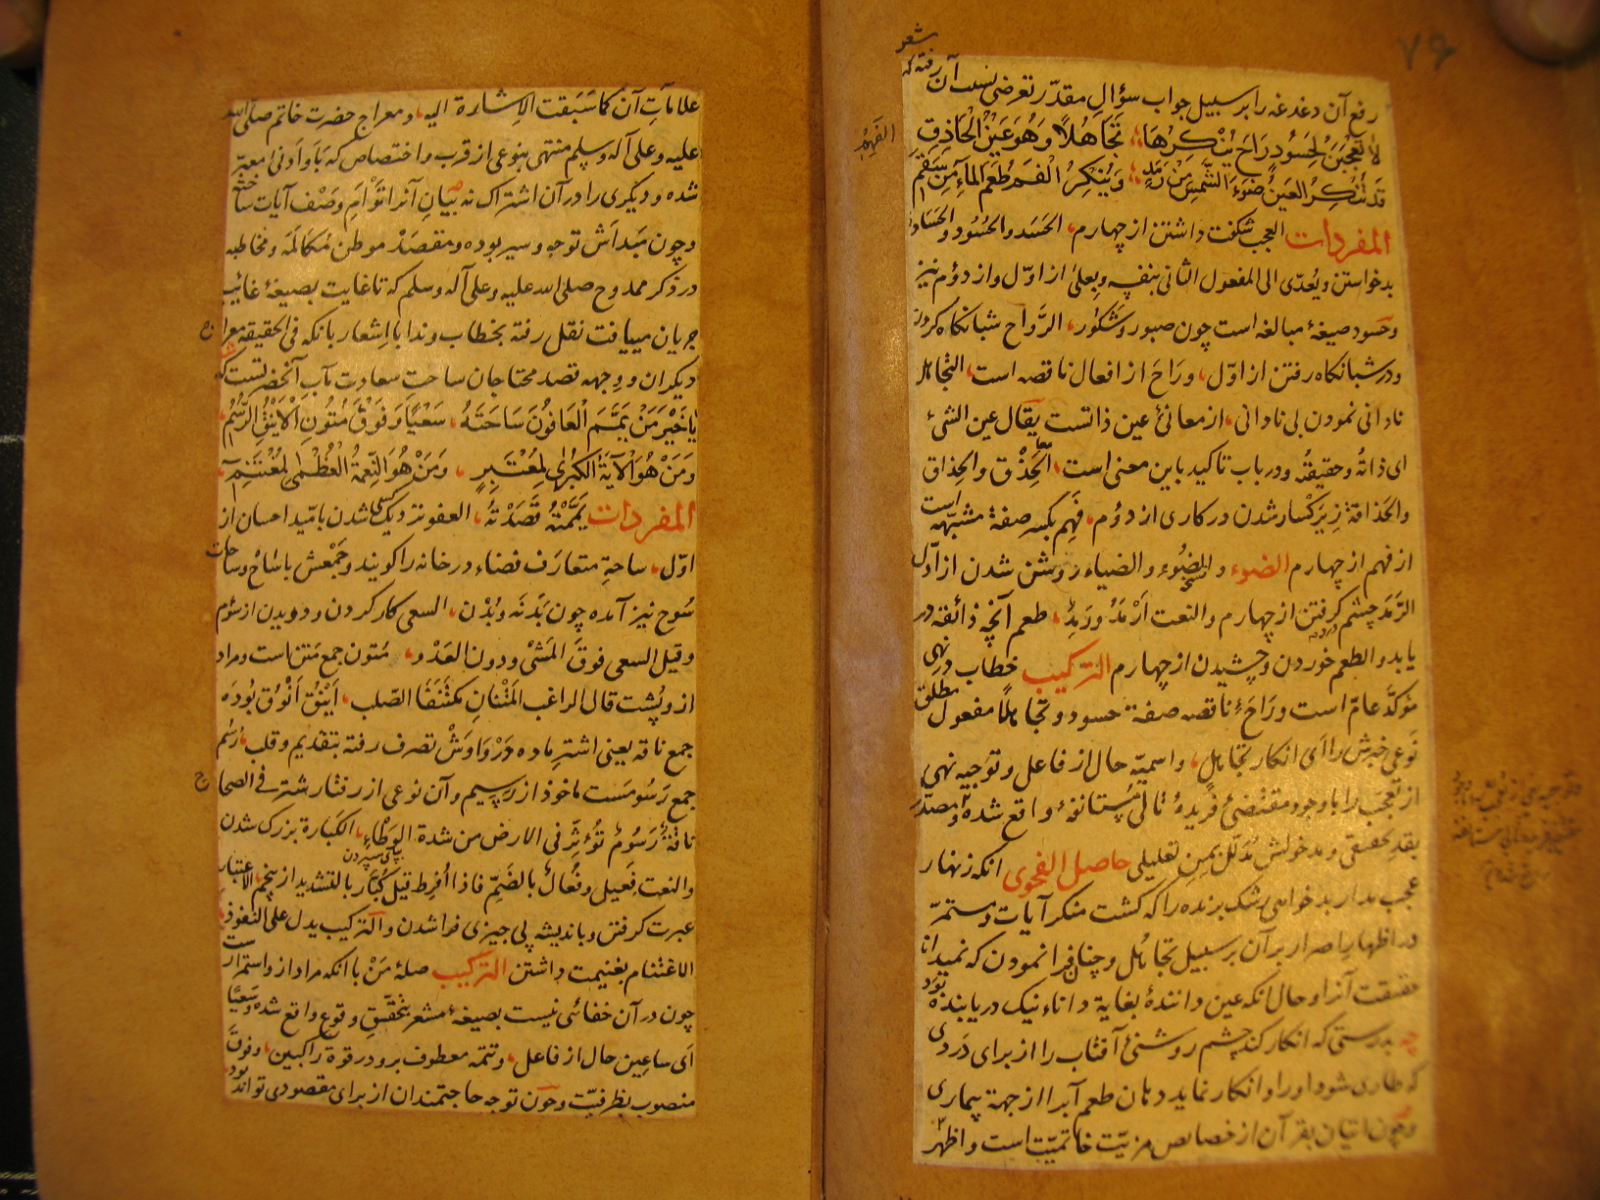 ۷۶
شعر
رفع آن دغدغه را بر سبیل جواب سؤال مقدّر تعرضی نسبت آن رفته که
لا تَعجَبَنْ لِحَسُودٍ رَاحَ یُنْکِرُهَا، تَجَاهُلًا وَهُوَ عَیْنُ الْحَاذِقِ
الفَهِمِ
قَد تُنْکِرُ العَینُ ضَوْءَ الشَّمْسِ مِنْ رَمَدٍ، وَیُنْکِرُ الْفَمُ طَعْمَ الْمَاءِ مِنْ سَقَمِ
المفردات العجب شکفت داشتن از چهارم، الحَسَد والحُسُود والحَسَادة
بدخواستن ویُعدّی الی المفعول الثانی بنفسه وبعلیٰ از اوّل واز دوُم نیز
وحَسود صیغهٔ مبالغه است چون صبور وشکور، الرَّواح شبانکاه کردن
ودر شبانکاه رفتن از اوّل، ورَاحَ از افعال ناقصه است، التجاهل
نادانی نمودن بی نادانی، از معانیٔ عین ذاتست یقال عین الشیٔ
ای ذاتُهُ وحقیقتُه ودر باب تاکید باین معنی است، الحِذْق والحِذاق
والحَذاقة زیرکسار شدن در کاری از دوُم، فَهِم بکسر صفهٔ مشبّهه است
از فهم از چهارم الضوء والضُوء والضیاء روشن شدن از اوّل
الرَّمَد چشم کرفتن از چهارم والنعت اَرْمَدُ ورَمِدٌ، طعم آنچه ذائقه در
یابد والطعم خوردن وچشیدن از چهارم الترکیب خطاب در نهی
مؤکّد عامّ است ورَاحَ ناقصه صفهٔ حسود وتجاهلًا مفعول مطلق
نَوعی خبرش را ای انکار تجاهلٍ، واسمیّه حال از فاعل وتوجیه نهی
از تعجّب را باوجود مقتضیٔ فریدهٔ تالی مُستانفهٔ واقع شده ومصدّر
بقد تحقیقی ومدخولش مُدَلّل بمِن تعلیلی حاصل الفحوی انکه زنهار
عجب مدار بدخواهی رشک برنده را که کشت منکر آیات ومستمرّ
در اظهار اصرار بر آن بر سبیل تجاهُل وچنان فرا نمودن که نمیداند
حقیقت آنرا وحال انکه عین دانندهٔ بغایة داناء نیک دریابنده بود
چه بدرستی که انکار کند چشم روشنیٔ آفتاب را از برای دَردی
که طاری شود اورا وانکار نماید دهان طعم آبرا از جهة بیماری
وچون اتیان بقرآن از خصایص مزیّت خاتمیّت است واظهر
علاماتِ آن کما سَبَقت الاِشارة الیه، ومعراج حضرت خاتم صلّی الله
علیه وعلی آله وسلم منتهی بنوعی از قرب واختصاص که باَو اَدنیٰ معبّر
شده ودیکری را در آن اشتراک نه بیانِ آنرا تَوْاَمِ وَصف آیات ساخته
وچون مَبدأش توجه وسیر بوده ومقصَد موطن مُکالَمَه ومخاطبه
در ذکر ممدوح صلی الله علیه وعلی آله وسلم که تا غایت بصیغهٔ غائب
جریان مییافت نقل رفته بخطاب وندا با اِشعار بانکه فی الحقیقه معراج
دیکران ووجهه قصد محتاجان ساحتِ سعادت مآبِ آنحضرتست که
یا خَیْرَ مَنْ یَمَّمَ الْعَافُونَ سَاحَتَهُ، سَعْیًا وَفَوْقَ مُتُونِ الْاَیْنُقِ الرُّسُمِ
وَمَنْ هُوَ الْآیَةُ الْکُبْرٰی لِمُعْتَبِرٍ، وَمَنْ هُوَ النِّعْمَةُ الْعُظْمٰی لِمُغْتَنِمِ
المفردات یَمَّمْتُهُ قَصَدْتُهُ، العفو نزدیک کسی شدن بامّید احسان از
اوّل، ساحة متعارَف فضاء در خانه را کویند وجَمْعش باسَاحٌ وساحات
سُوح نیز آمده چون بَدَنَه وبُدْن، السعی کار کردن ودویدن از سوُم
وقیل السعی فوقَ المَشْی ودون العَدْو، مُتون جمع مَتن است ومراد
ازو پُشت قال الراغب المَتْنانِ مکتَنَفَا الصّلب، اَیْنُق اَنْوُق بُودَه
جمع ناقه یعنی اشتر ماده ودَرْ وَاوَشْ تصرف رفته بتقدیم وقلب، رُسُم
جمع رَسُومست ماخوذ از رسیم وآن نوعی از رفتار شتر فی الصحاح
ناقةٌ رَسُومٌ تُؤثّر فی الارض من شدة الوَطْاء، الکَبارة بزرک شدن
بپای سپردن
والنعت فَعیل وفُعال بالضّمّ فاذا اُفرِط قیل کُبّار بالتشدید از پنجم، الاعتبار
عبرت کرفتن وباندیشه پی چیزی فرا شدن والترکیب یدل علی النفوذ،
الاغتنام بغنیمت داشتن الترکیب صلهٔ مَنْ با انکه مراد ازو استمرارست
چون در آن خفائی نیست بصیغهٔ مشعر بتحقّقِ وقوع واقع شده وسَعیًا
اَی ساعین حال از فاعل، وتتمه معطوف برو در قوة راکبین، وفوقَ
منصوب بظرفیّت وچون توجه حاجتمندان از برای مقصودی تواند بود